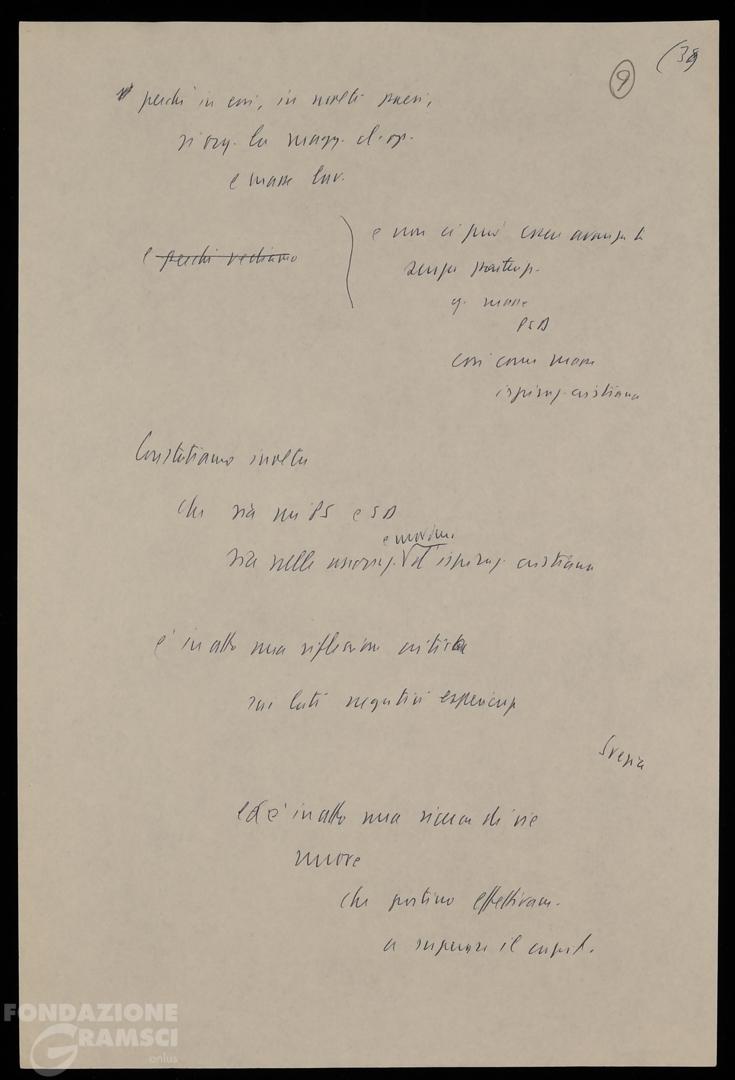 (38
9
perché in essi, in molti paesi,
si org. la magg. cl. op.
e masse lav.
e perché vediamo
e non ci può essere avanzata
senza partecip.
q. masse
PSD
così come masse
ispiraz. cristiana
Constatiamo inoltre
che sia nei PS e SD
e movim.
sia nelle organizz. d'ispiraz. cristiana
è in atto una riflessione critica
sui lati negativi esperienze
Svezia
ed è in atto una ricerca di vie
nuove
che portino effettivam.
a superare il capit.
FONDAZIONE
GRAMSCI
onlus